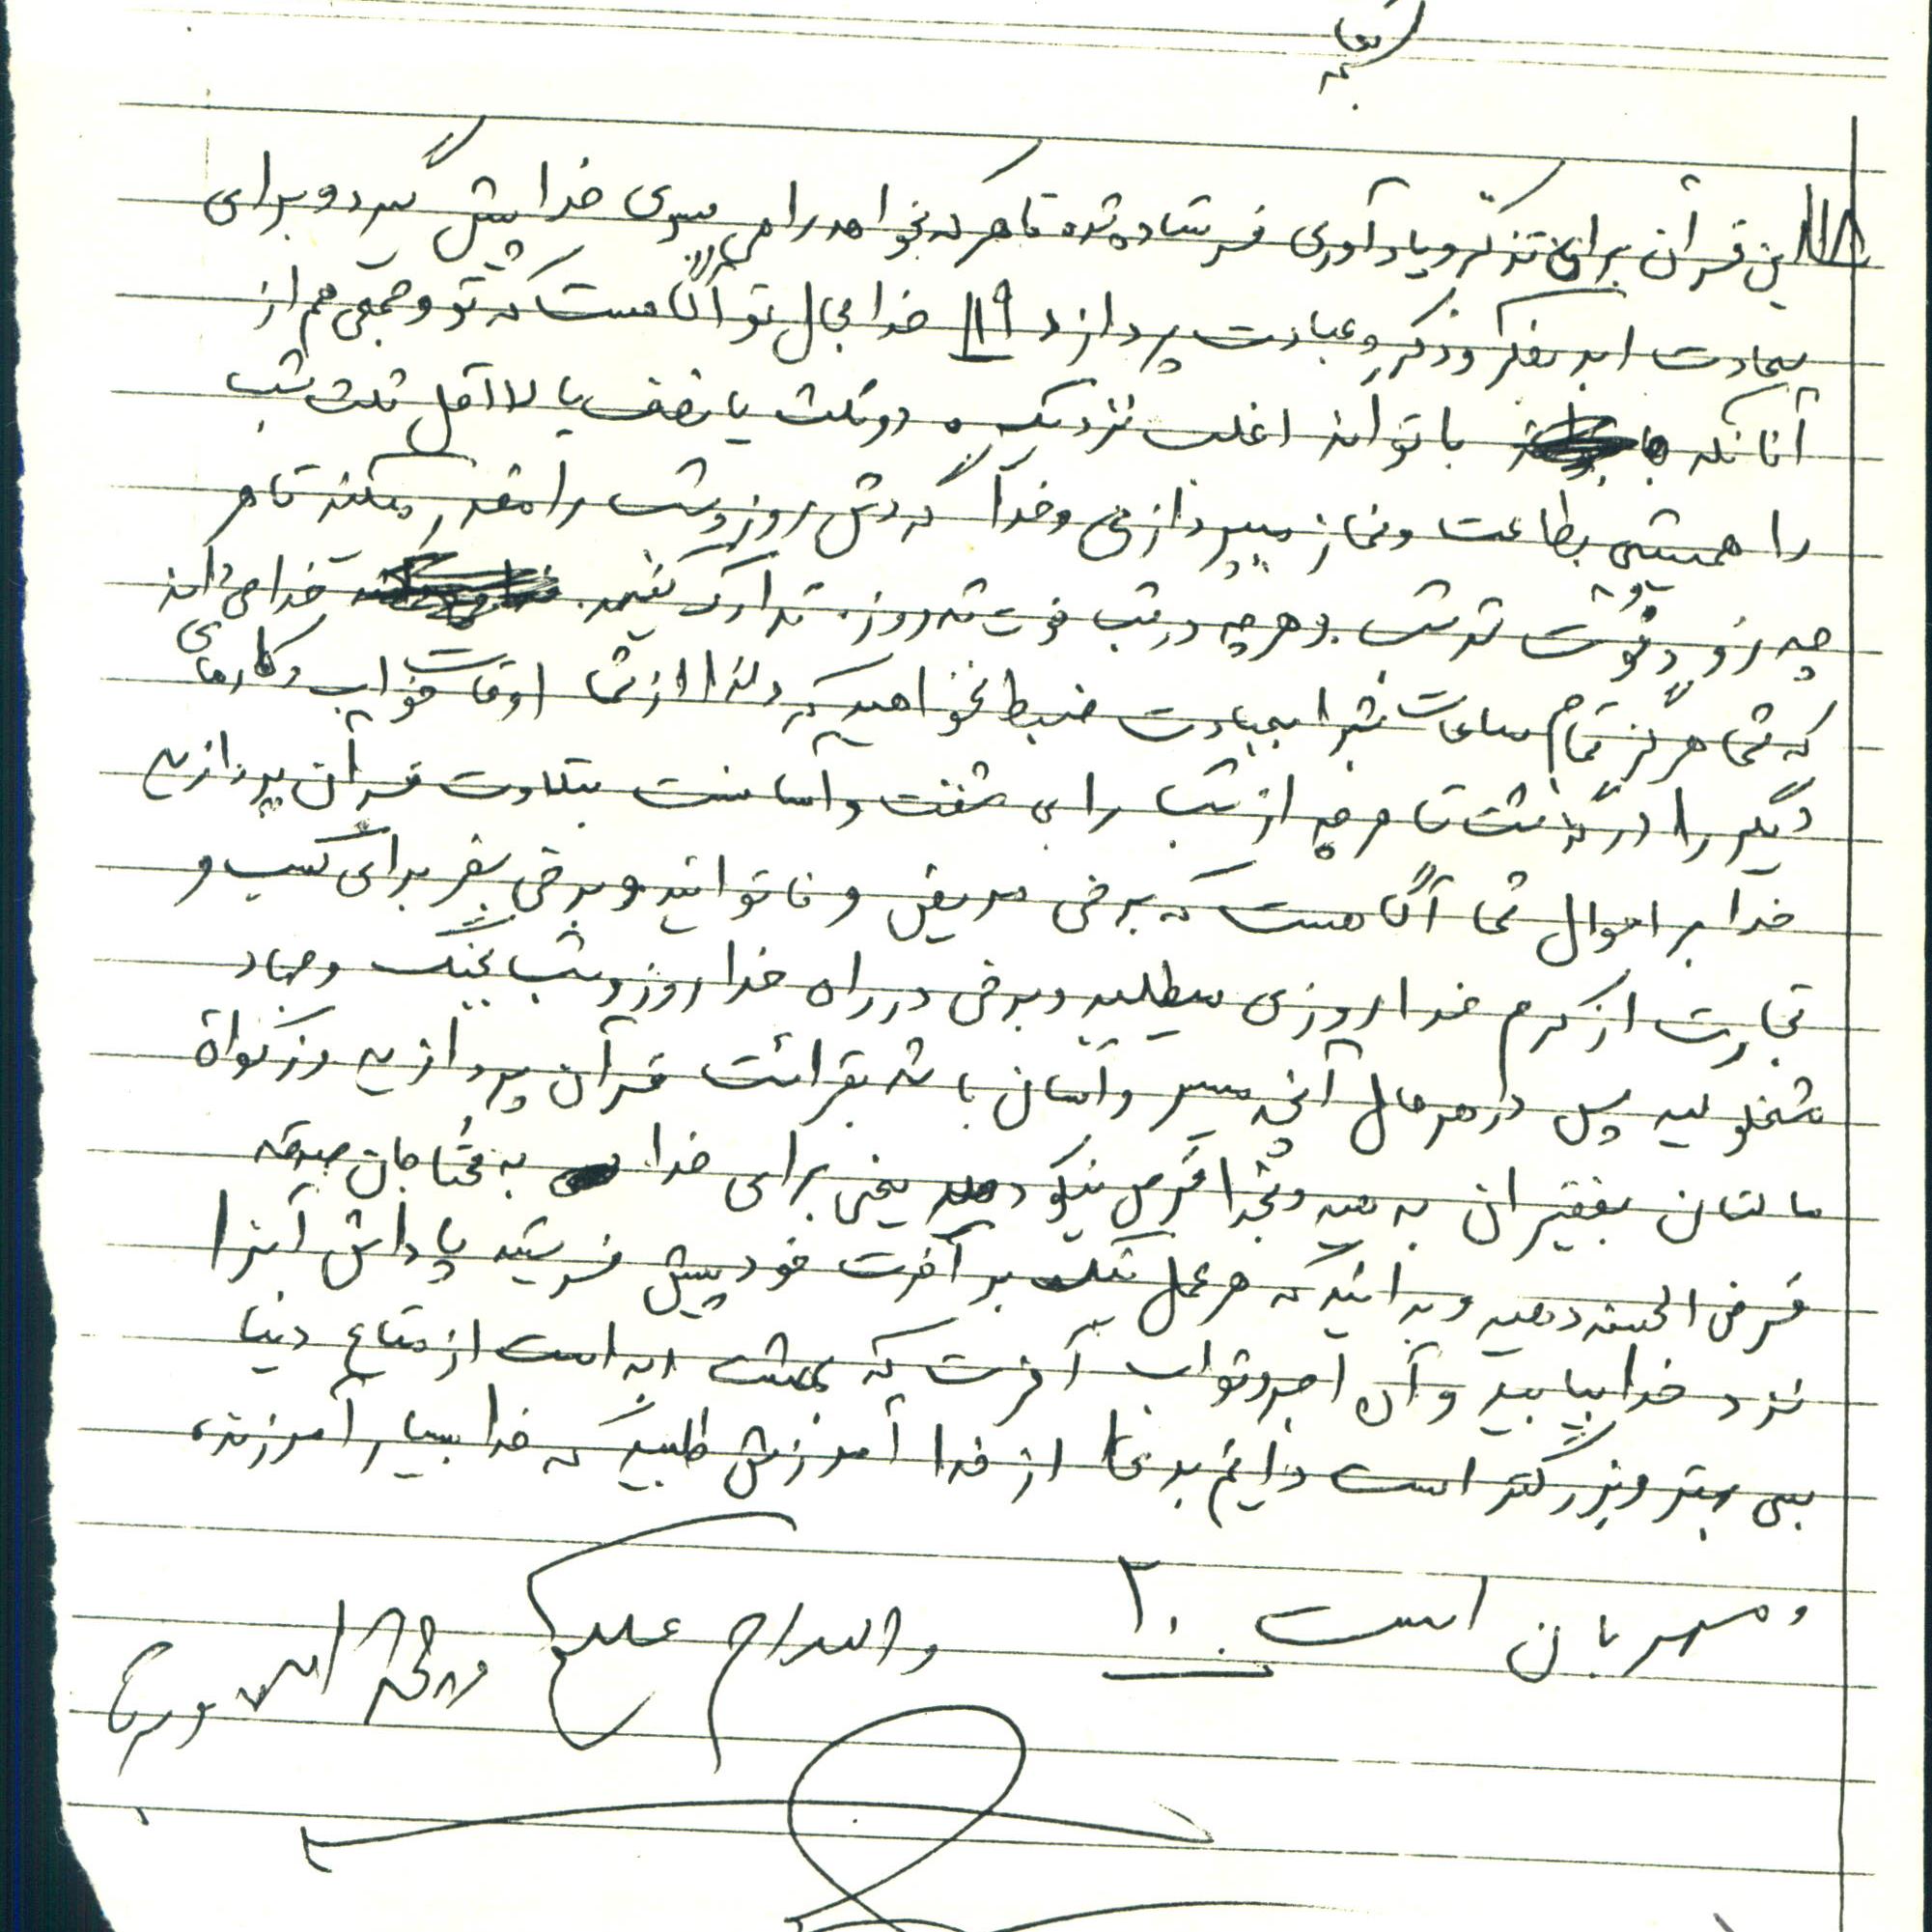 این قرآن برای تذکر و یادآوری فرستاده شده تا هر که بخواهد راهی بسوی خدا پیش گیرد و برای
سعادت ابد بفکر و ذکر و عبادت پردازد ۱۹ خدا بحال تو آگاهست که تو و جمعی هم از
آنانکه با تو اند اغلب نزدیک دو ثلث یا نصف یا لااقل ثلث شب
را همیشه بطاعت و نماز میپردازی و خدا گردش روز و شب را مقدر میکند تا هر
چه روز فوت شد شب و هرچه در شب فوت شد روز تدارک کنید. خدا می داند
که شما هرگز تمام ساعات شبرا بعبادت ضبط نخواهید کرد لذا از شما اوقات خواب و کارهای
دیگر را درگذشت تا هرچه از شب را بی مشقت و آسانست بتلاوت قرآن پردازید
خدا بر احوال شما آگاهست که برخی مریض و ناتوانید و برخی بسفر برای کسب و
تجارت از کرم خدا روزی میطلبید و برخی در راه خدا روز و شب بجنگ و جهاد
مشغولید پس در هر حال آنچه میسر و آسان باشد بقرائت قرآن پردازید و زکواة
مالتان بفقیران بدهید و بخدا قرض نیکو دهید یعنی برای خدا به محتاجان صدقه
قرض الحسنه دهید و بدانید که هر عمل نیک بر آخرت خود پیش فرستید پاداش آنرا
نزد خدا بیابید و آن اجر و ثواب آخرت که بهشت ابد است از متاع دنیا
بسی بهتر و بزرگتر است دایم بدعا از خدا آمرزش طلبید که خدا بسیار آمرزنده
و مهربان است ۲۰ والسلام علیکم